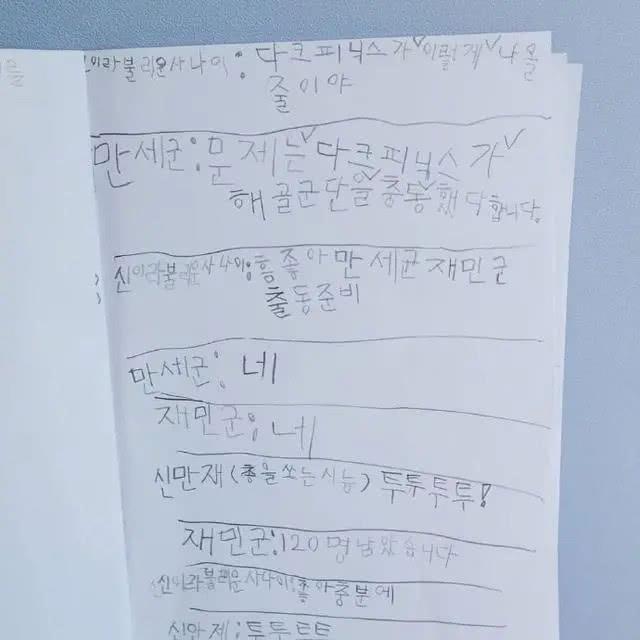 이라불리운사나이: 다크피닉스가 이렇게 나올
줄이야
만세군: 문제는 다크피닉스가
해골군단을 충동했다합니다.
신이라불리운사나이: 흠 좋아 만세군 재민군
출동준비
만세군: 네
재민군: 네
신만재 (총을 쏘는 시늉) 투투투투!
재민군: 120명 남았습니다
신이라불리운사나이: 좋아 충분에
신만제: 투투투투